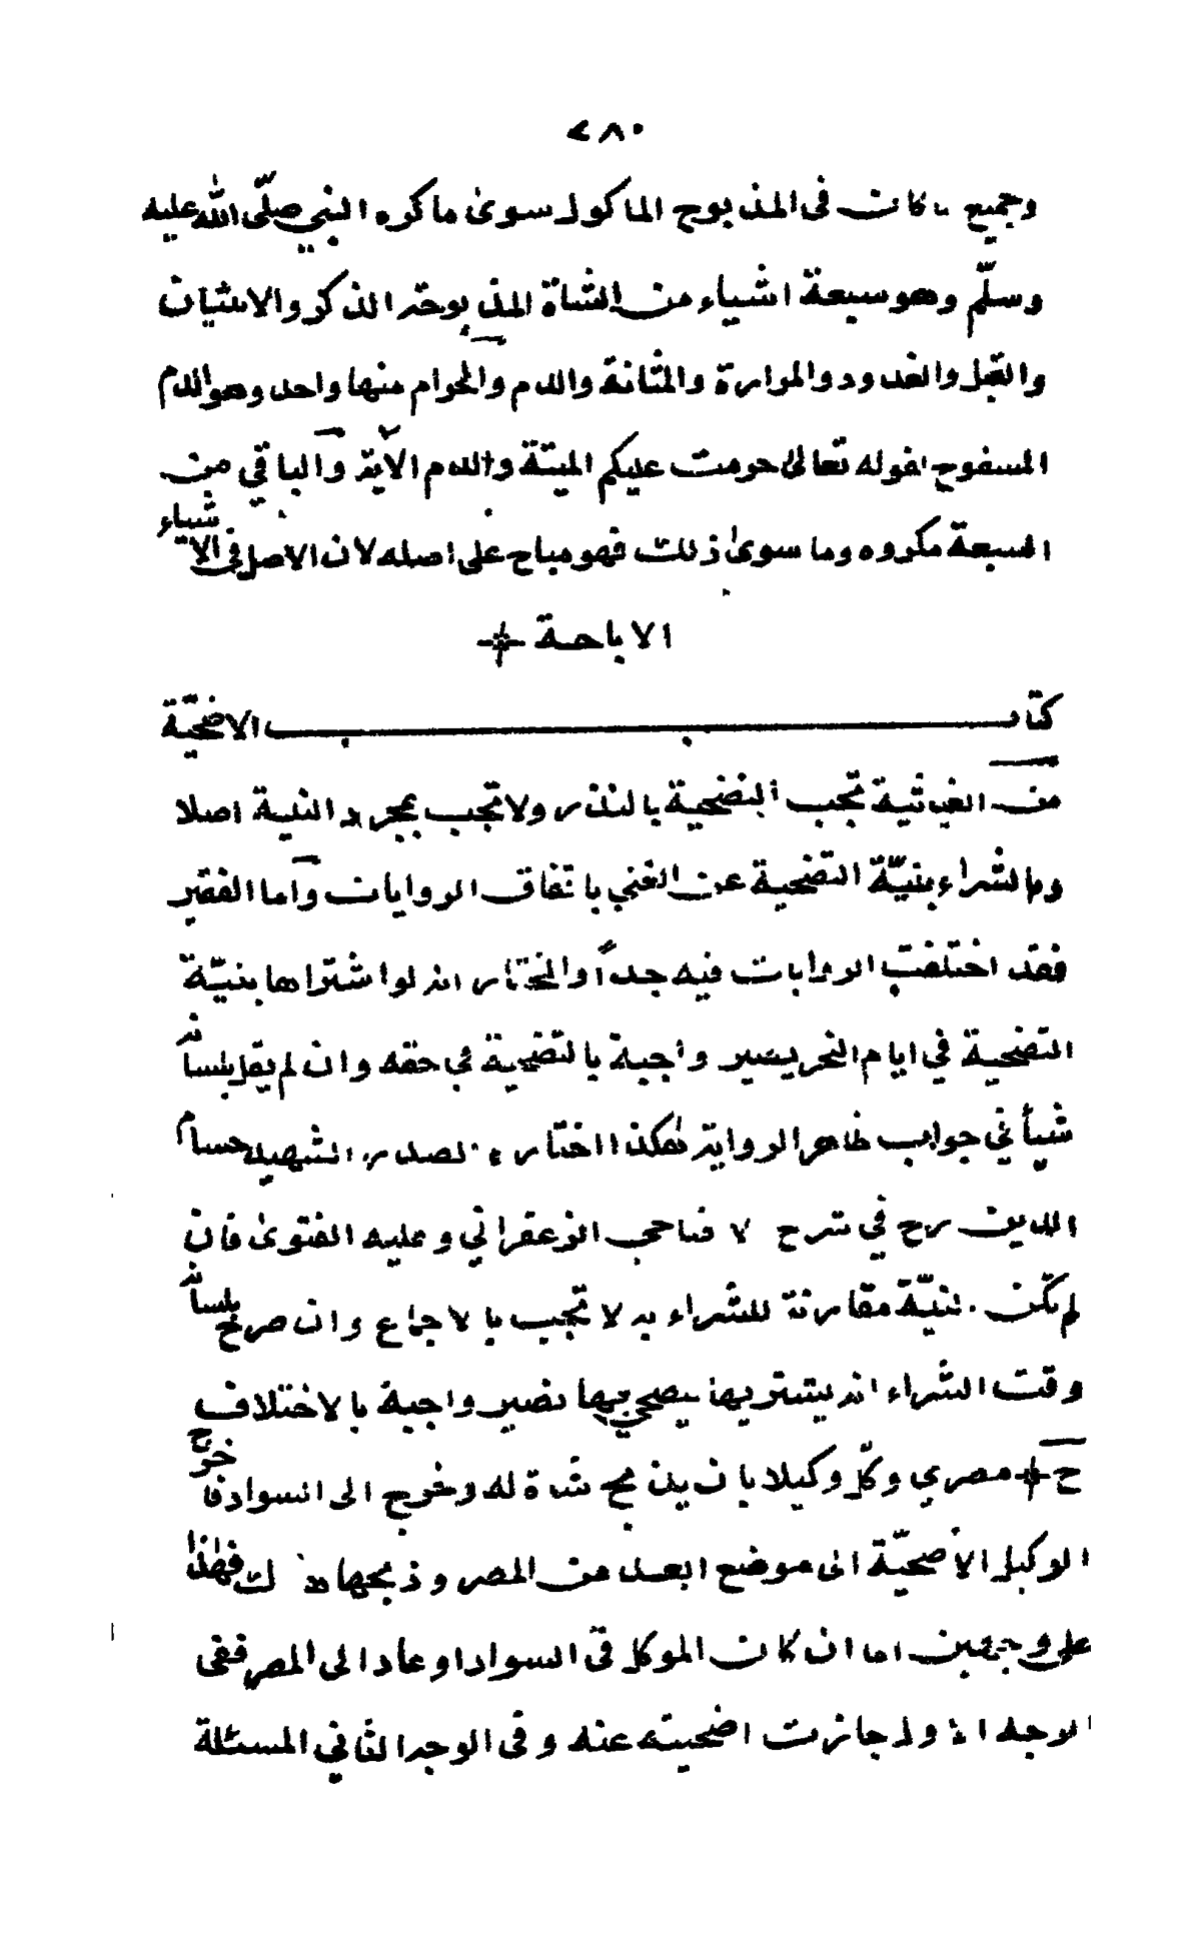 ٢٨٠
وجميع ما كان فى المذبوح الماكول سوىٰ ما كره النبي صلّى الله عليه
وسلّم وهو سبعة اشياء من الشاة المذبوحة الذكر والانثيان
والقبل والغدود والمرارة والمثانة والدم والحرام منها واحد وهو الدم
المسفوح لقوله تعالىٰ حرمت عليكم الميتة والدم الآية والباقي من
السبعة مكروه وما سوىٰ ذلك فهو مباح على اصله لان الاصل فى الاشياء
الاباحة
كتاب الاضحيّة
من الغياثية تجب التضحية بالنذر ولا تجب بمجرد النية اصلا
وبالشراء بنيّة التضحية عن الغني باتفاق الروايات واما الفقير
فقد اختلفت الروايات فيه جداً والمختار انه لو اشتراها بنيّة
التضحية في ايام النحر يصير واجبة بالتضحية في حقه وان لم يقل بلسانه
شيأ في جواب ظاهر الرواية هٰكذا اختاره الصدر الشهيد حسام
الدين رح في شرح لا ضاحى الزعفراني وعليه الفتوىٰ فان
لم تكن نيّة مقارنة للشراء به لا تجب بالاجماع وان صرح بلسانه
وقت الشراء انه يشتريها ليضحي بها تصير واجبة بالاختلاف
ح مصري وكّل وكيلا بان يذبح شاة له وخرج الى السواد فاخرج
الوكيل الأضحيّة الى موضع ابعد من المصر وذبحها هناك فهٰذا
على وجهين اما ان كان الموكل فى السواد او عاد الى المصر ففى
الوجه الاول جازت اضحيته عنه وفى الوجه الثاني المسئلة